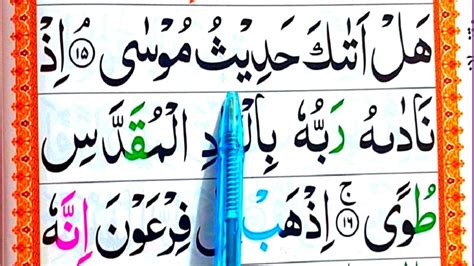 هَلْ اَتٰىكَ حَدِيْثُ مُوْسٰى ۝۱۵ اِذْ
نَادٰىهُ رَبُّهٗ الْمُقَدَّسِ
طُوًى ۚ ۝۱۶ اِذْهَبْ فِرْعَوْنَ اِنَّهٗ